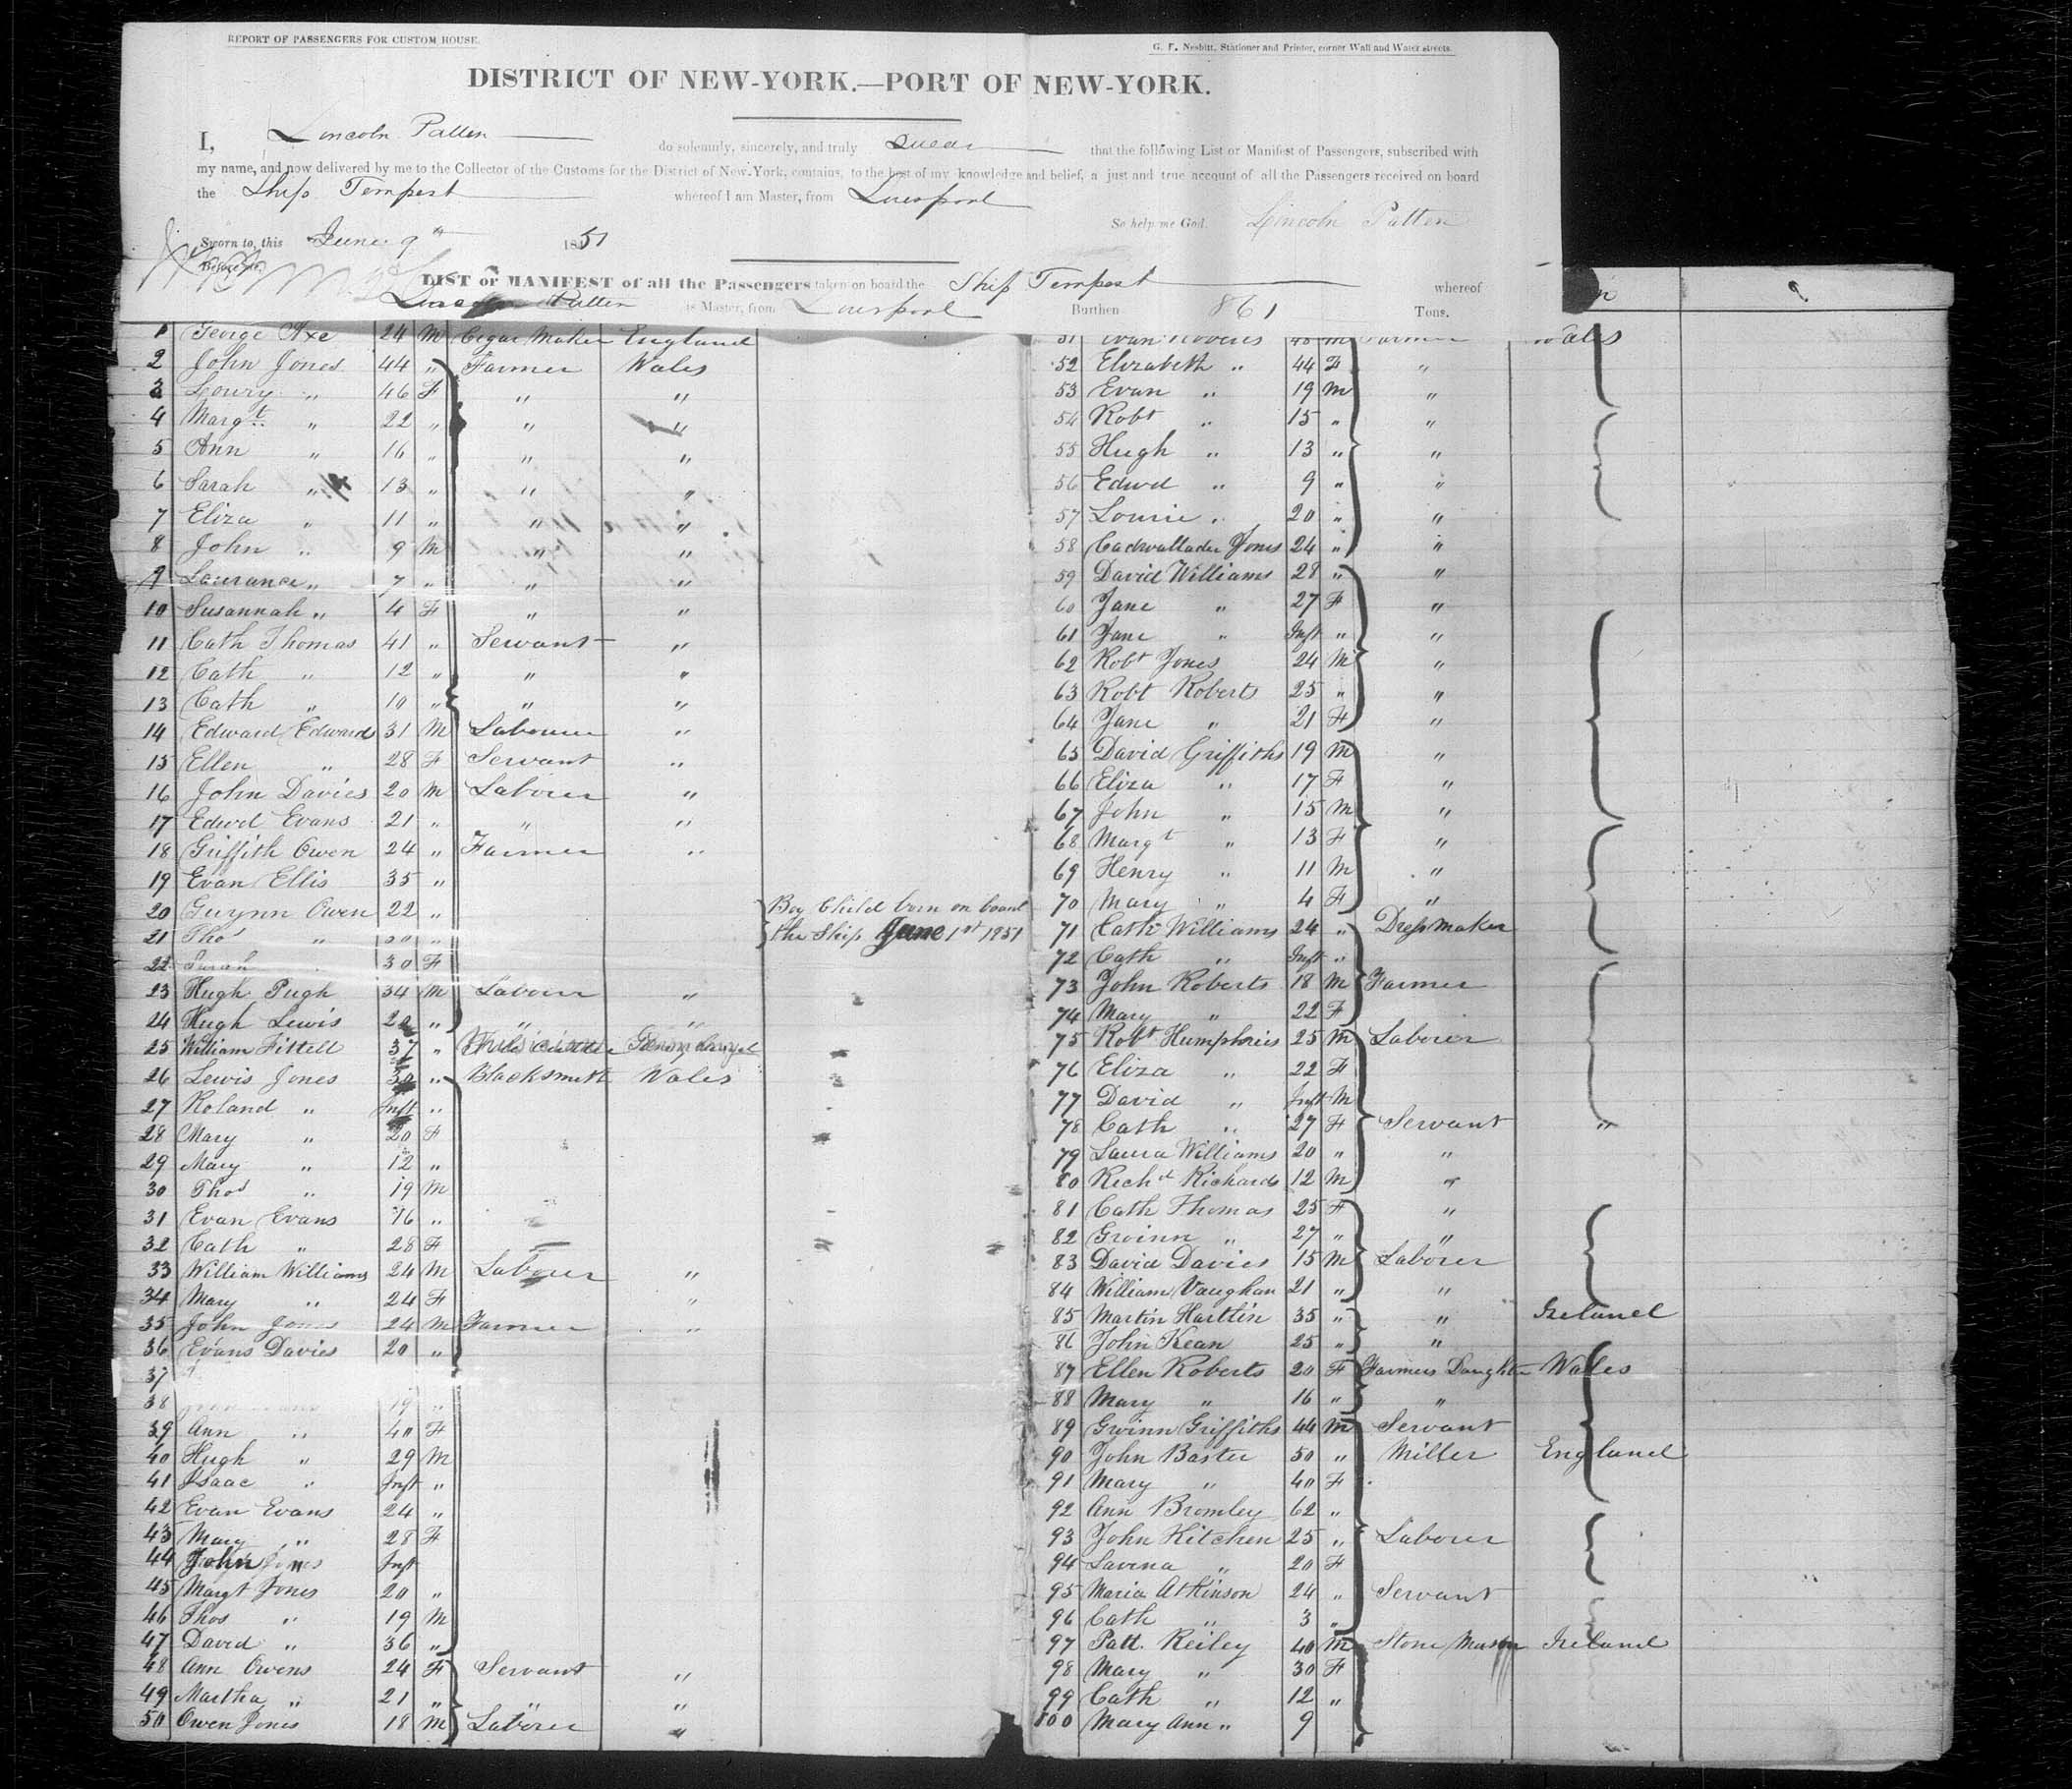 REPORT OF PASSENGERS FOR CUSTOM HOUSE.
G. F. Nesbitt, Stationer and Printer, corner Wall and Water streets.
DISTRICT OF NEW-YORK.—PORT OF NEW-YORK.
I, Lincoln Patten do solemnly, sincerely, and truly swear that the following List or Manifest of Passengers, subscribed with
my name, and now delivered by me to the Collector of the Customs for the District of New-York, contains, to the best of my knowledge and belief, a just and true account of all the Passengers received on board
the Ship Tempest whereof I am Master, from Liverpool
So help me God. Lincoln Patten
Sworn to, this June 9th 1851
Before me,
LIST or MANIFEST of all the Passengers taken on board the Ship Tempest whereof
Lincoln Patten is Master, from Liverpool Burthen 861 Tons.
1 George Axe 24 M Cigar Maker England
2 John Jones 44 " Farmer Wales
3 Lowry " 46 F " "
4 Margt " 22 " " "
5 Ann " 16 " " "
6 Sarah " 13 " " "
7 Eliza " 11 " " "
8 John " 9 M " "
9 Laurance " 7 " " "
10 Susannah " 4 F " "
11 Cath Thomas 41 " Servant "
12 Cath " 12 " " "
13 Cath " 10 " " "
14 Edward Edwards 31 M Labourer "
15 Ellen " 28 F Servant "
16 John Davies 20 M Laborer "
17 Edwd Evans 21 " " "
18 Griffith Owen 24 " Farmer "
19 Evan Ellis 35 "
20 Gwynn Owen 22 " Boy Child born on board
21 Thos " 30 " the Ship June 1st 1851
22 Sarah 30 F
23 Hugh Pugh 34 M Labourer "
24 Hugh Lewis 20 " " "
25 William Fittell 37 "
26 Lewis Jones 30 " Blacksmith Wales
27 Roland " Inft "
28 Mary " 20 F
29 Mary " 12 "
30 Thos " 19 M
31 Evan Evans 16 "
32 Cath " 28 F
33 William Williams 24 M Labourer "
34 Mary " 24 F "
35 John Jones 24 M Farmer "
36 Evans Davies 20 "
37
38 19 "
39 Ann " 40 F
40 Hugh " 29 M
41 Isaac " Inft "
42 Evan Evans 24 "
43 Mary " 28 F
44 John Jones Inft
45 Margt Jones 20 "
46 Thos " 19 M
47 David " 36 "
48 Ann Owens 24 F Servant "
49 Martha " 21 " " "
50 Owen Jones 18 M Laborer "
51 Evan Roberts 48 M Farmer Wales
52 Elizabeth " 44 F "
53 Evan " 19 M "
54 Robt " 15 " "
55 Hugh " 13 " "
56 Edwd " 9 " "
57 Lourie " 20 " "
58 Cadwallader Jones 24 " "
59 David Williams 28 " "
60 Jane " 27 F "
61 Jane " Inft " "
62 Robt Jones 24 M "
63 Robt Roberts 25 " "
64 Jane " 21 F "
65 David Griffiths 19 M "
66 Eliza " 17 F "
67 John " 15 M "
68 Margt " 13 F "
69 Henry " 11 M "
70 Mary " 4 F "
71 Cath Williams 24 " Dressmaker
72 Cath " Inft "
73 John Roberts 18 M Farmer
74 Mary " 22 F
75 Robt Humphries 25 M Laborer
76 Eliza " 22 F
77 David " Inft M
78 Cath " 27 F Servant "
79 Laura Williams 20 " "
80 Richd Richards 12 M "
81 Cath Thomas 25 F "
82 Gwinn " 27 " "
83 David Davies 15 M Laborer
84 William Vaughan 21 " "
85 Martin Hartlin 35 " " Ireland
86 John Kean 25 " "
87 Ellen Roberts 20 F Farmers Daughter Wales
88 Mary " 16 " "
89 Gwinn Griffiths 44 M Servant
90 John Baster 50 " Miller England
91 Mary " 40 F
92 Ann Bromley 62 "
93 John Kitchen 25 " Laborer
94 Lavina " 20 F
95 Maria Atkinson 24 " Servant
96 Cath " 3 "
97 Patt. Reiley 40 M Stone Mason Ireland
98 Mary " 30 F
99 Cath " 12 "
100 Mary Ann " 9